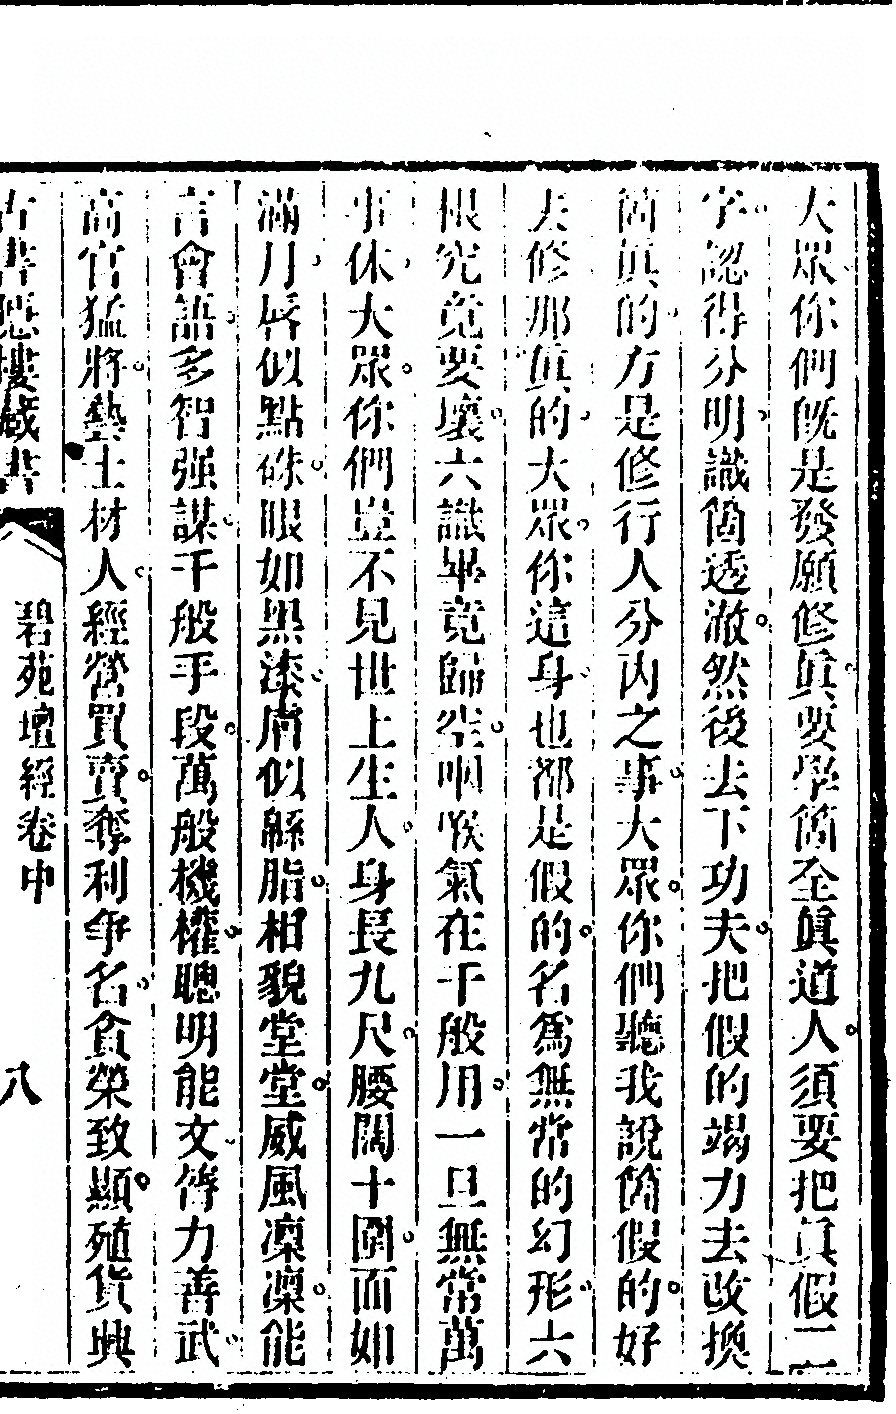 大眾你們既是發願修眞要學箇全眞道人須要把眞假二
字認得分明識箇透澈然後去下功夫把假的竭力去改換
箇眞的方是修行人分內之事大眾你們聽我說箇假的好
去修那眞的大眾你這身也都是假的名爲無常的幻形六
根究竟要壞六識畢竟歸空咽喉氣在千般用一旦無常萬
事休大眾你們豈不見世上生人身長九尺腰闊十圍面如
滿月唇似點硃眼如黑漆膚似綿脂相貌堂堂威風凜凜能
言會語多智强謀千般手段萬般機權聰明能文膂力善武
高官猛將藝士材人經營買賣奪利爭名貪榮致顯殖貨典
古書隱樓藏書
碧苑壇經卷中
八